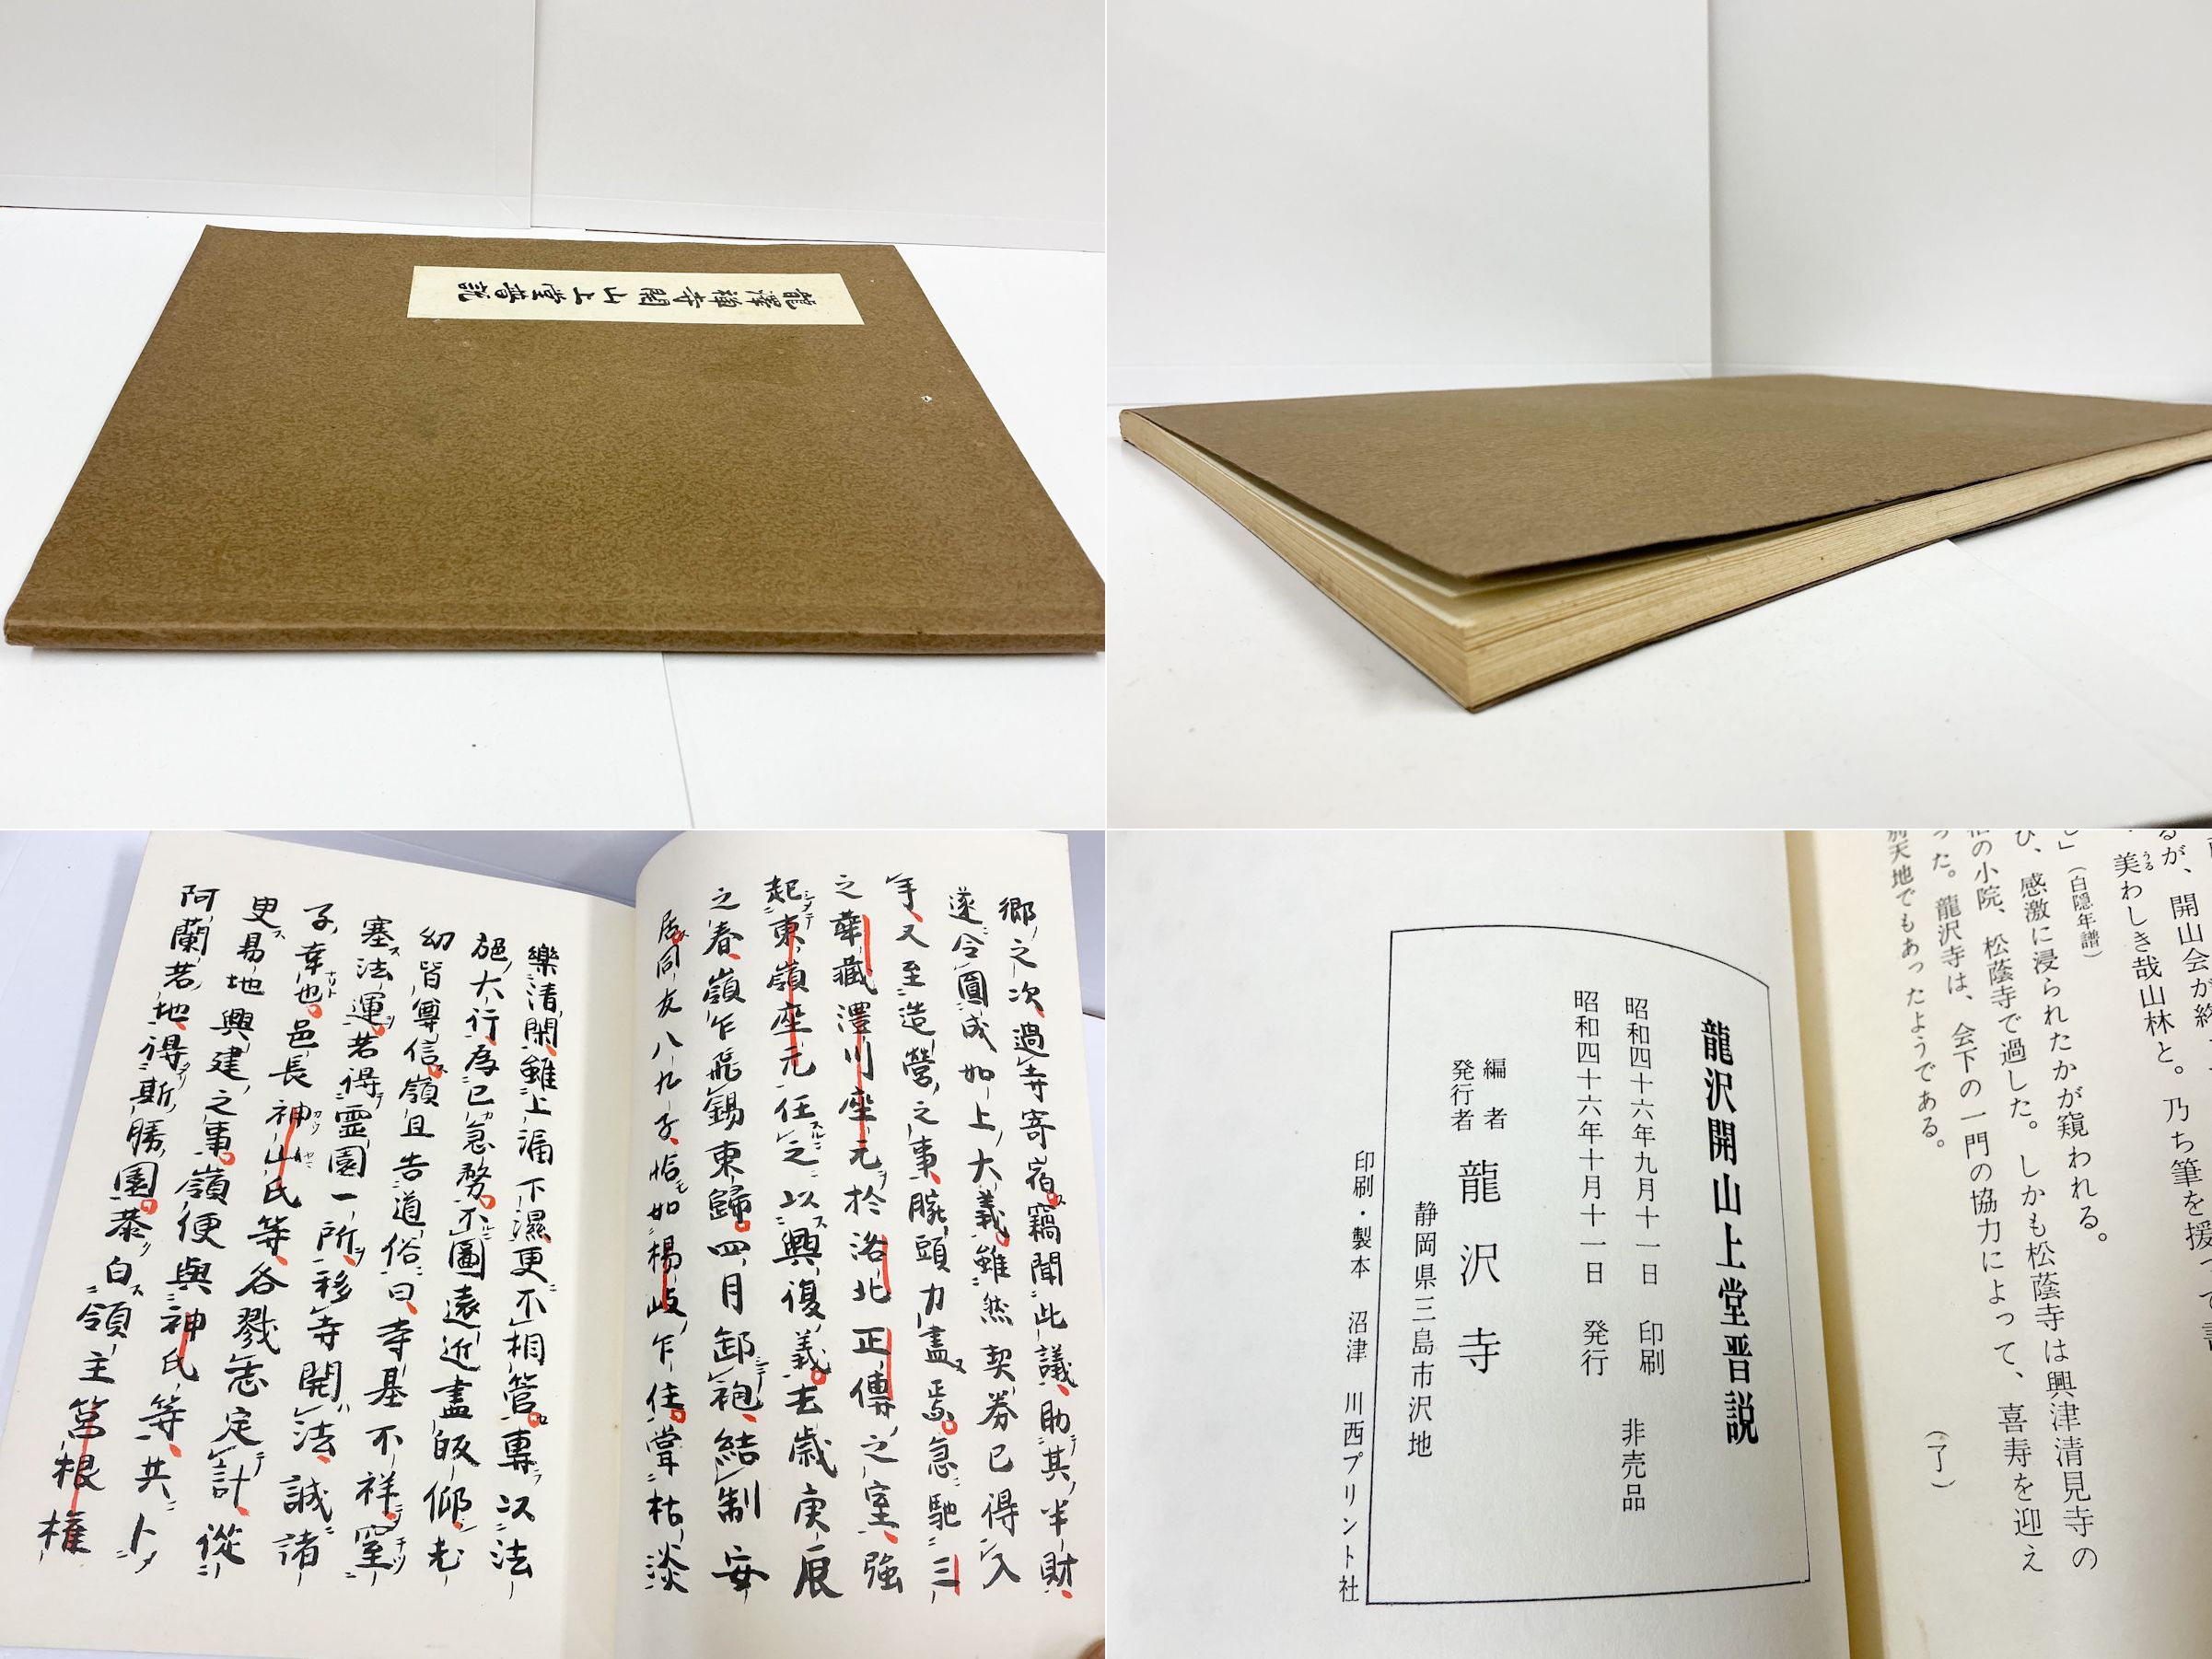 龍澤禅寺開山上堂普説
郷之次過寺寄宿竊聞此議助其半財
遂令圓成如上大義雖然契券已得入
手又至造營之事腕頭力盡焉急馳三
之華藏澤川座元於洛北正傳之室強
起東嶺座元任之以興復義去歳庚辰
之春嶺乍飛錫東歸四月卸袍結制安
居同友八九子恰如楊岐乍住當枯淡
樂清閑雖上漏下濕更不相管專以法
施大行為已急務不圖遠近盡皈仰老
幼皆尊信嶺且告道俗曰寺基不祥窒
塞法運若得霊園一所移寺開法誠諸
子幸也邑長神山氏等各戮志定計從
吏易地興建之事嶺便與神氏等共卜
阿蘭若地得斯勝園恭白領主筥根権
龍沢開山上堂晋説
昭和四十六年九月十一日 印刷
昭和四十六年十月十一日 発行
非売品
編者
発行者
龍沢寺
静岡県三島市沢地
印刷・製本 沼津 川西プリント社
るが、開山会が終
美わしき哉山林と。乃ち筆を援
うる
（白隠年譜）
び、感激に浸られたかが窺われる。
の小院、松蔭寺で過した。しかも松蔭寺は興津清見寺の
った。龍沢寺は、会下の一門の協力によって、喜寿を迎え
別天地でもあったようである。
（了）